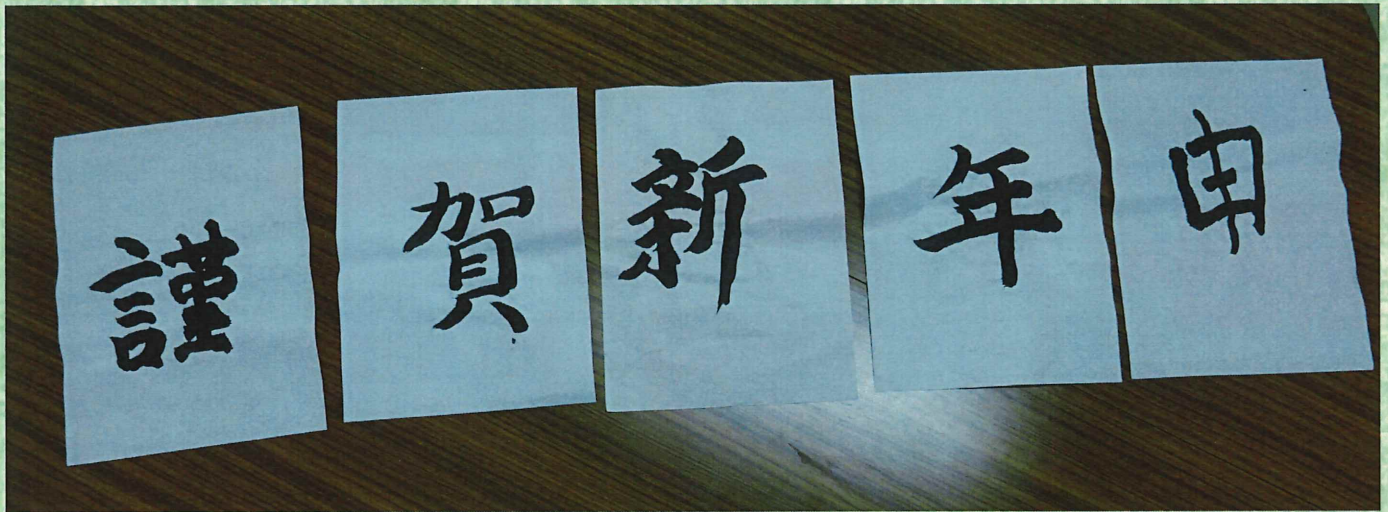 謹賀新年申